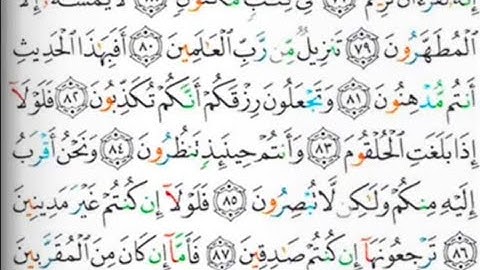 إِنَّهُۥ لَقُرْءَانٌ كَرِيمٌ ٧٧ فِى كِتَٰبٍ مَّكْنُونٍ ٧٨ لَّا يَمَسُّهُۥٓ إِلَّا
ٱلْمُطَهَّرُونَ ٧٩ تَنزِيلٌ مِّن رَّبِّ ٱلْعَٰلَمِينَ ٨٠ أَفَبِهَٰذَا ٱلْحَدِيثِ
أَنتُم مُّدْهِنُونَ ٨١ وَتَجْعَلُونَ رِزْقَكُمْ أَنَّكُمْ تُكَذِّبُونَ ٨٢ فَلَوْلَآ
إِذَا بَلَغَتِ ٱلْحُلْقُومَ ٨٣ وَأَنتُمْ حِينَئِذٍ تَنظُرُونَ ٨٤ وَنَحْنُ أَقْرَبُ
إِلَيْهِ مِنكُمْ وَلَٰكِن لَّا تُبْصِرُونَ ٨٥ فَلَوْلَآ إِن كُنتُمْ غَيْرَ مَدِينِينَ
٨٦ تَرْجِعُونَهَآ إِن كُنتُمْ صَٰدِقِينَ ٨٧ فَأَمَّآ إِن كَانَ مِنَ ٱلْمُقَرَّبِينَ